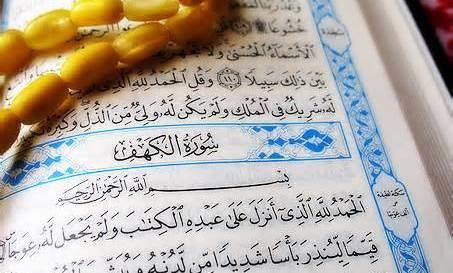 خُشُوعًا ۩
الْأَسْمَاءُ الْحُسْنَىٰ وَلَا
بَيْنَ ذَٰلِكَ سَبِيلًا ۝١١٠ وَقُلِ الْحَمْدُ لِلَّهِ الَّذِي
لَّهُ شَرِيكٌ فِي الْمُلْكِ وَلَمْ يَكُن لَّهُ وَلِيٌّ مِّنَ الذُّلِّ وَكَبِّرْهُ
سُورَةُ الكَهْفِ
بِسْمِ اللَّهِ الرَّحْمَٰنِ الرَّحِيمِ
الْحَمْدُ لِلَّهِ الَّذِي أَنزَلَ عَلَىٰ عَبْدِهِ الْكِتَٰبَ وَلَمْ يَجْعَل لَّهُ عِوَجًا
قَيِّمًا لِّيُنذِرَ بَأْسًا شَدِيدًا مِّن لَّدُنْهُ